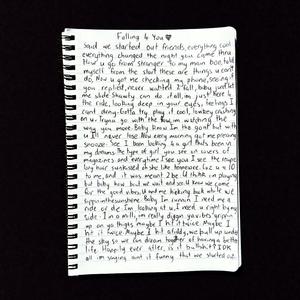 Falling 4 You
said we started out friends, everything cool
everything changed the night you came thru
Now u go from stranger to my main boo, told
myself from the start these are things u can't
do, Now u got me checking my phone, seeing if
you replied, never wanted 2 fall, baby just let
me slide Shawty can do it all, im just here for
the ride, looking deep in your eyes, feelings I
cant deny. Gotta try play it cool, lowkey crushing
on u. Tryna go with the flow, im watching the
way you move. Baby know Im the goat but with
U Ill never lose Now every morning got me pressing
snooze. See I been looking 4 a girl thats been in
my dreams, the type of girl you see on covers of
magazines and everytime I see you I see the magic
boy hair sunkissed
to me, and it was meant 2 be. U think im playing
but baby how but we wait and see. U know we came
for the good vibes. U and me kicking back while we
sippin the sunshine. Baby Im runnin I need me a
ride or die. Im looking at u, I need u right by my
side. 1 in a milli, im really diggin ya vibes grippin
up on ya thighs maybe I hit it twice. Maybe I
hit it twice. Maybe I hit a giddy, we ball up under
the sky so we can dream together of having a better
life. Happily ever after, is it bullshit? IDK
all im saying aint it funny that we started oz